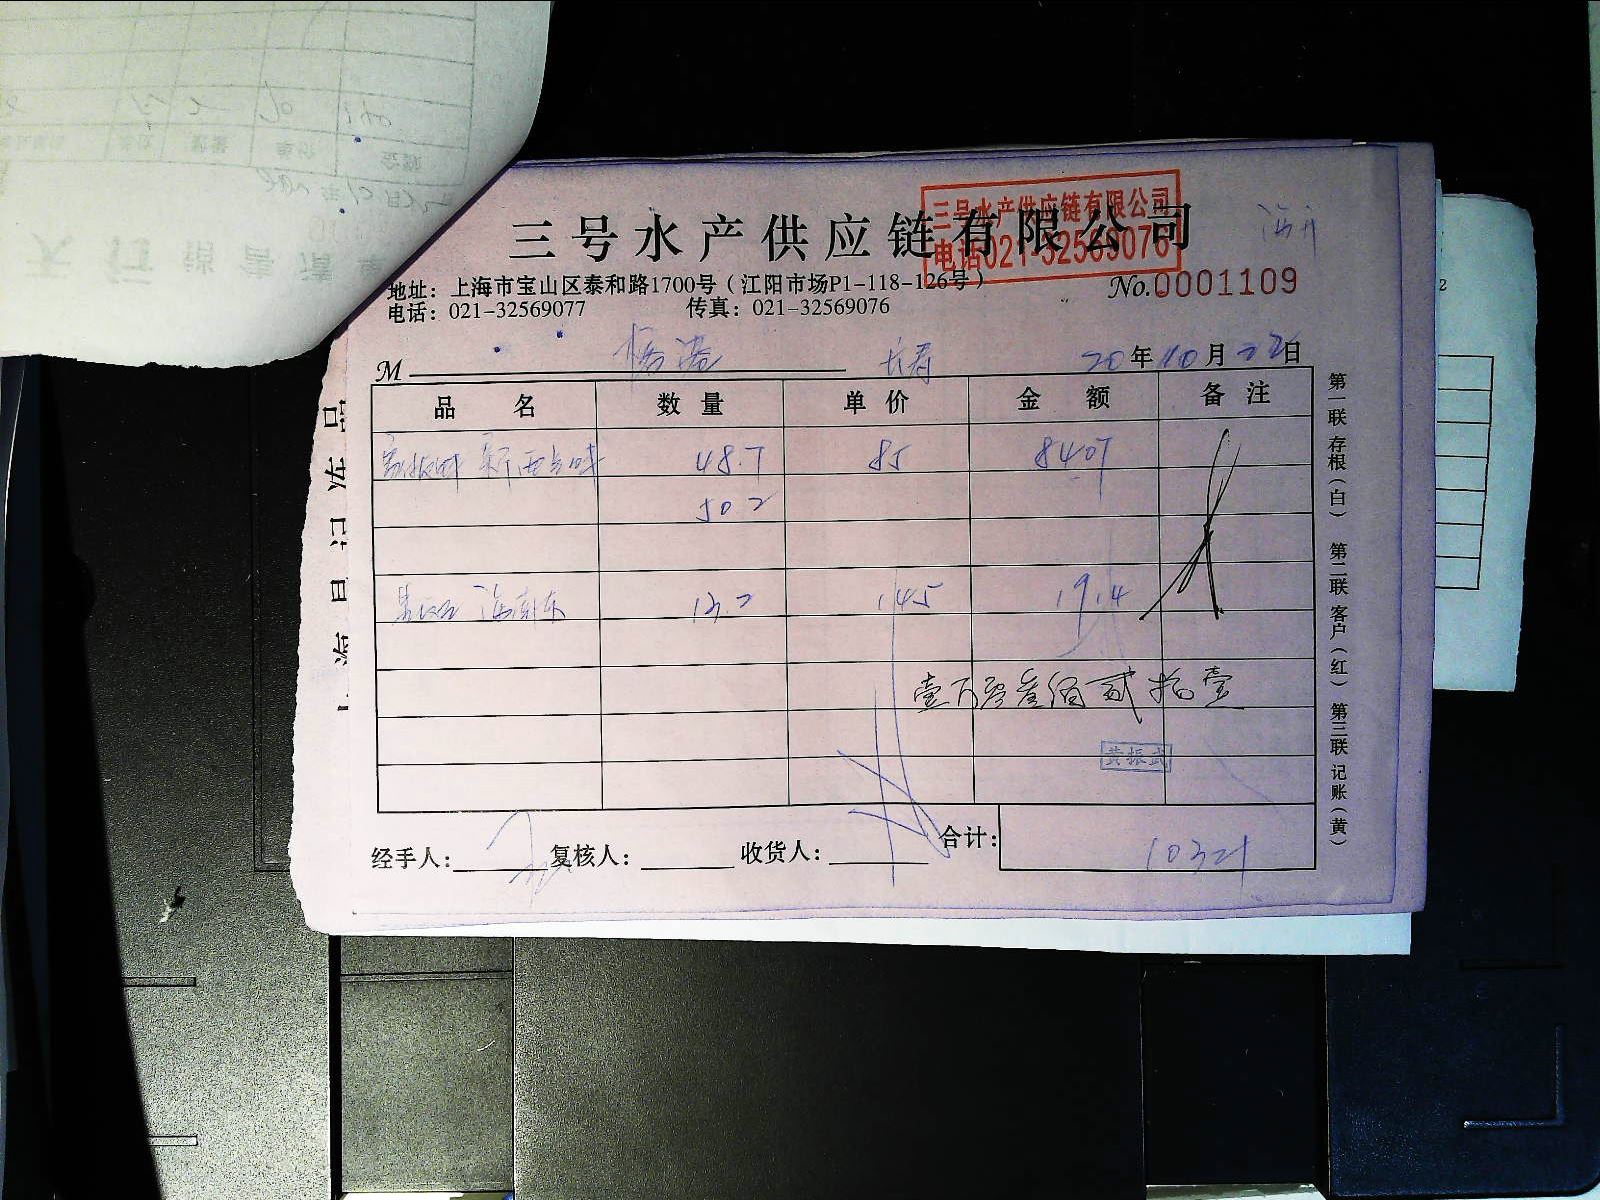 三号水产供应链有限公司
三号水产供应链有限公司
电话021-32569076
地址：上海市宝山区泰和路1700号（江阳市场P1-118-126号）
No.0001109
电话：021-32569077 传真：021-32569076
M 长寿 20年10月22日
品名 数量 单价 金额 备注
48.7 85 8407
50.2
13.2 145 1914
壹万零叁佰贰拾壹
黄振武
经手人： 复核人： 收货人： 合计： 10321
第一联 存根（白） 第二联 客户（红） 第三联 记账（黄）